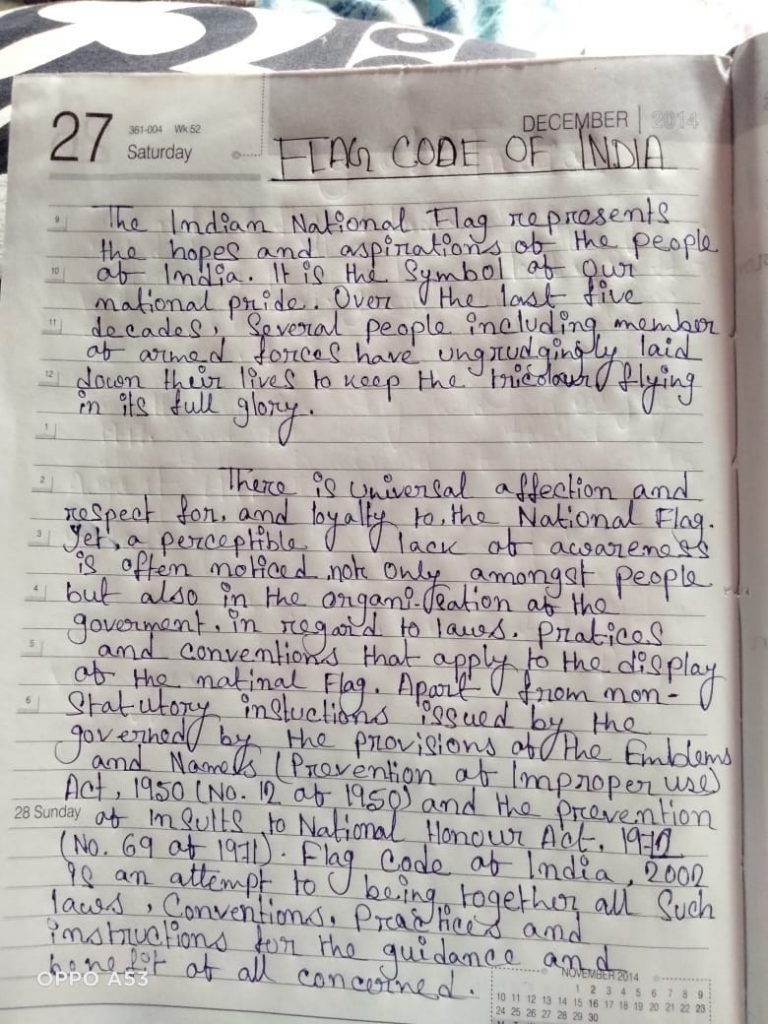 27
361-004 Wk 52
Saturday
DECEMBER | 2014
FLAG CODE OF INDIA
9 The Indian National Flag represents
the hopes and aspirations of the people
10 of India. It is the Symbol of our
national pride. Over the last five
11 decades, Several people including member
of armed forces have ungrudgingly laid
12 down their lives to keep the tricolour flying
in its full glory.
1
2 There is universal affection and
respect for, and loyalty to, the National Flag.
3 Yet, a perceptible lack of awareness
is often noticed, not only amongst people
4 but also in the organi-sation of the
goverment, in regard to laws, pratices
5 and conventions that apply to the display
of the natinal Flag. Apart from non-
6 Statutory instuctions issued by the
governed by the provisions of the Emblems
and Names (Prevention of Improper use)
Act, 1950 (No. 12 of 1950) and the prevention
28 Sunday of Insults to National Honour Act, 1971
(No. 69 of 1971). Flag Code of India, 2002
is an attempt to being together all Such
laws, Conventions, Practices and
instructions for the guidance and
benefit of all concerned.
OPPO A53
NOVEMBER 2014
1 2 3 4 5 6 7 8 9
10 11 12 13 14 15 16 17 18 19 20 21 22 23
24 25 26 27 28 29 30